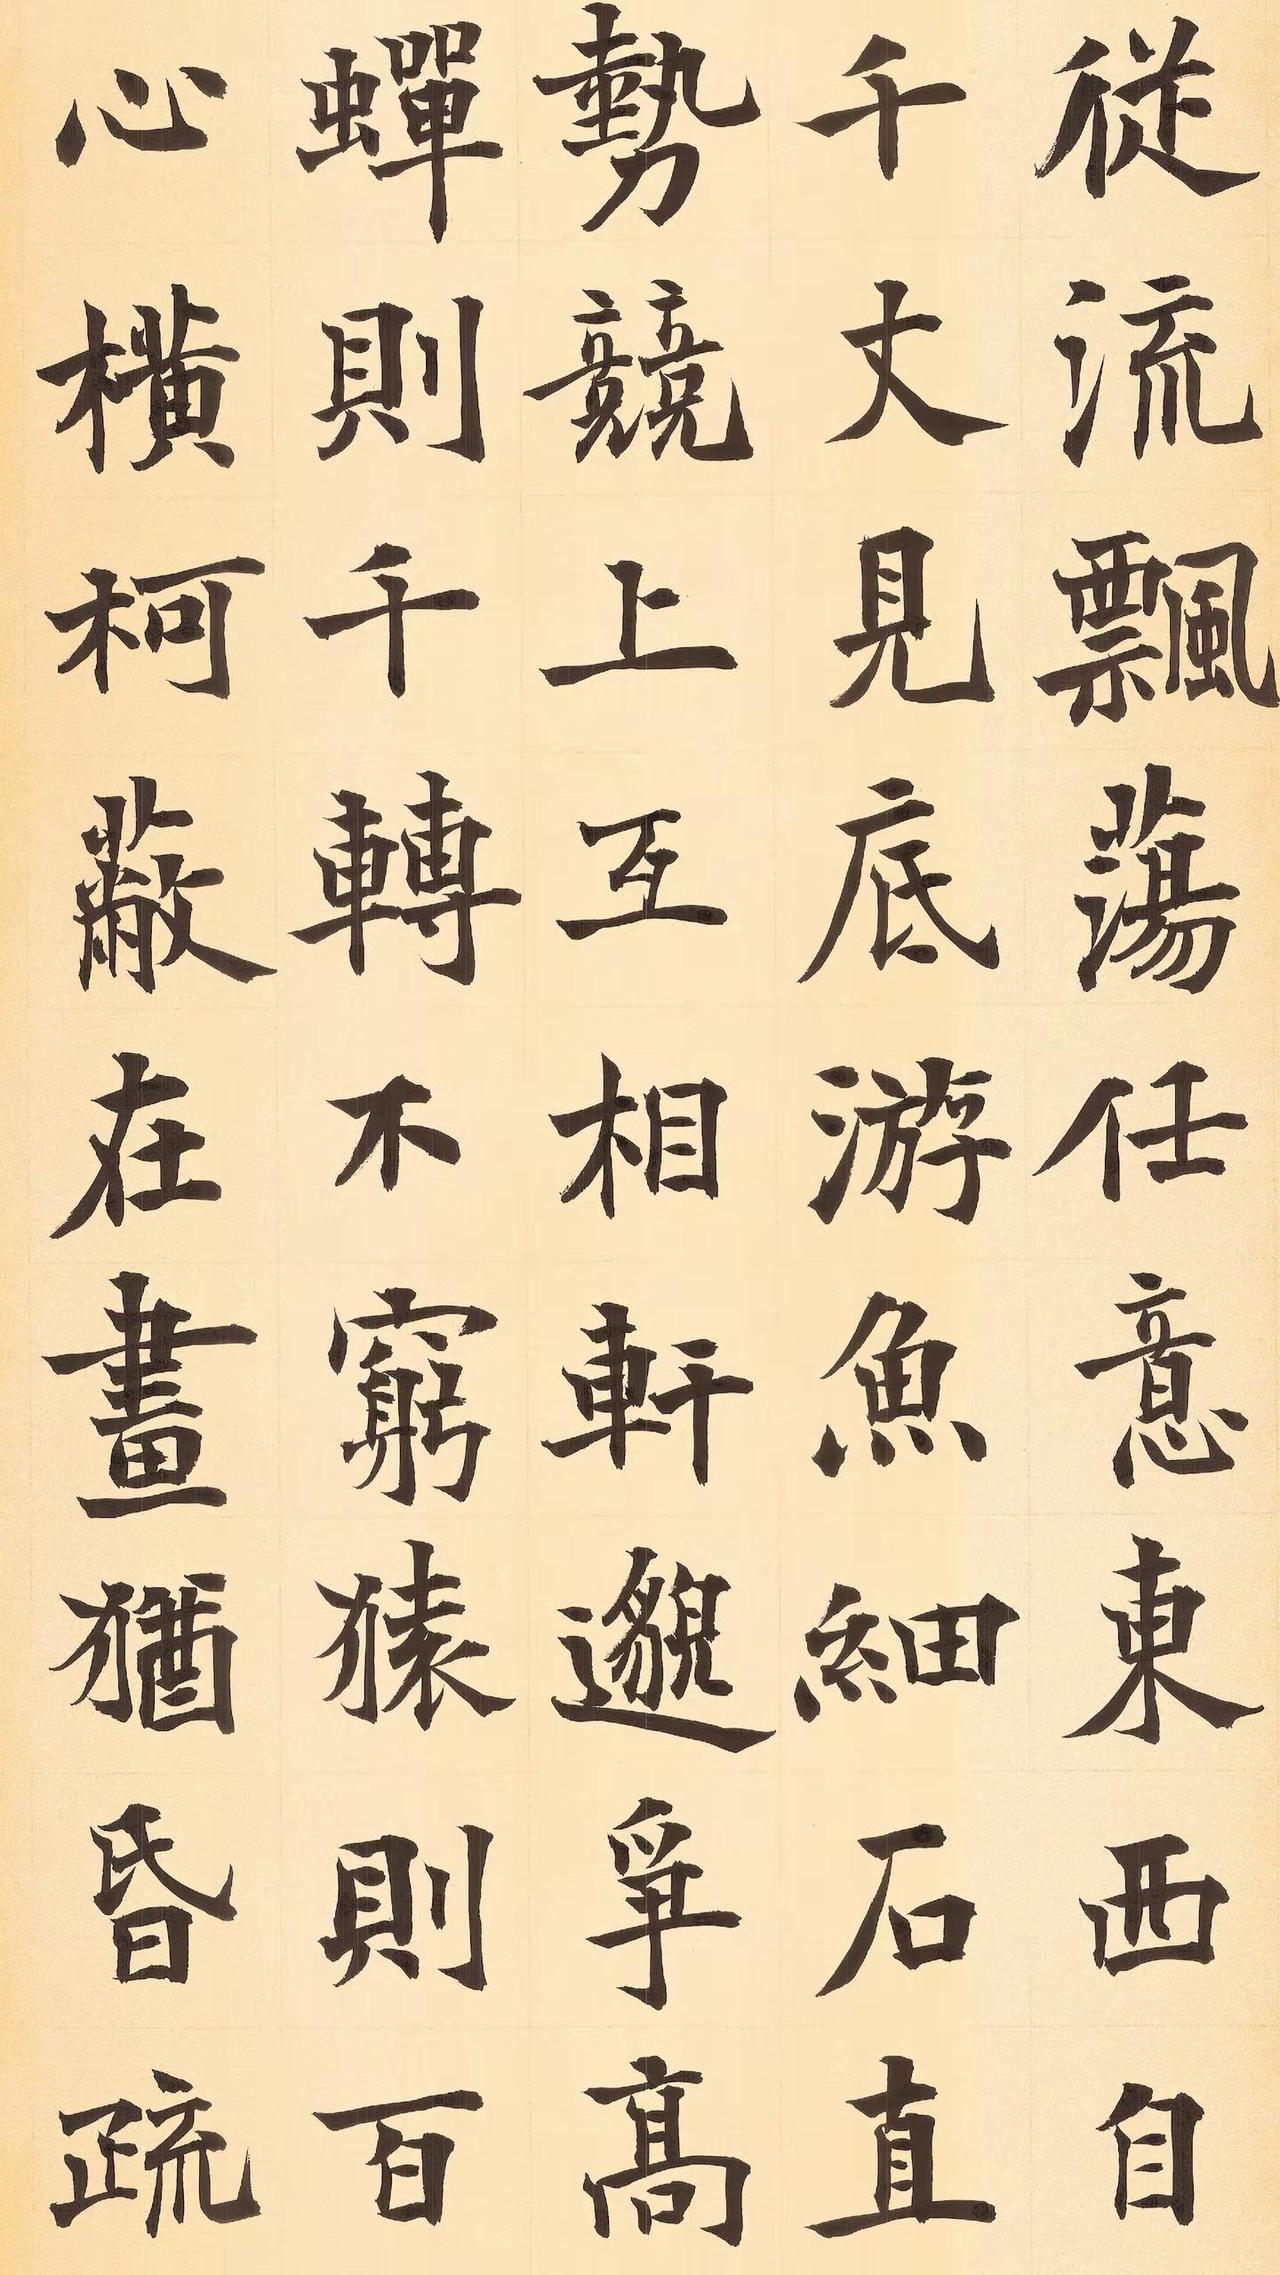 從流飄蕩任意東西自
千丈見底游魚細石直
勢競上互相軒邈爭高
蟬則千轉不窮猿則百
心橫柯蔽在晝猶昏疏